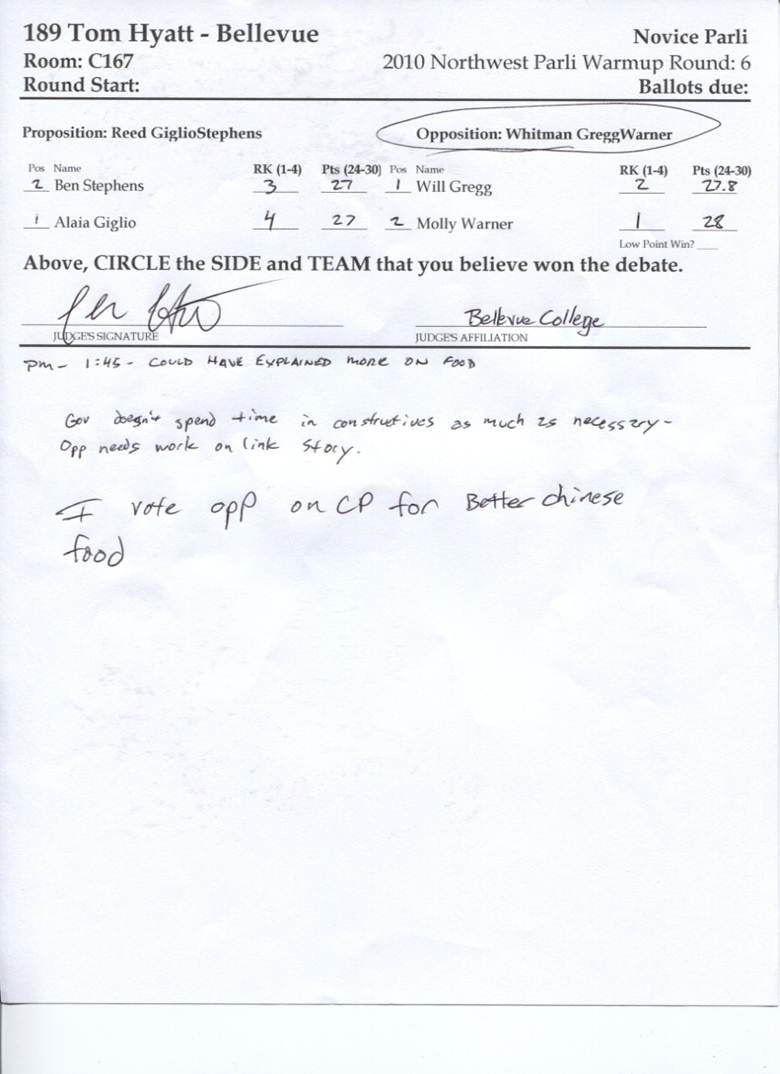 189 Tom Hyatt - Bellevue Novice Parli
Room: C167 2010 Northwest Parli Warmup Round: 6
Round Start: Ballots due:
Proposition: Reed GiglioStephens Opposition: Whitman GreggWarner
Pos Name RK (1-4) Pts (24-30) Pos Name RK (1-4) Pts (24-30)
2 Ben Stephens 3 27 1 Will Gregg 2 27.8
1 Alaia Giglio 4 27 2 Molly Warner 1 28
Low Point Win?
Above, CIRCLE the SIDE and TEAM that you believe won the debate.
Bellevue College
JUDGE'S SIGNATURE JUDGE'S AFFILIATION
PM - 1:45 - COULD HAVE EXPLAINED MORE ON FOOD
Gov doesn't spend time in constructives as much as necessary -
Opp needs work on link story.
I vote opp on CP for Better chinese
food